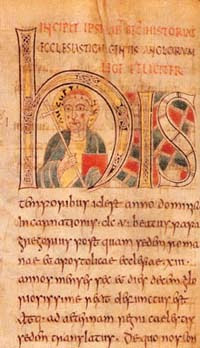 INCIPIT HISTORIAE
ECCLESIASTICAE GENTIS ANGLORUM
LEGE FELICITER
HIS
temporibus id est anno dominicae
incarnationis dc v beatus papa
gregorius postquam sedem roma
nae et apostolicae ecclesiae xiii
annos menses sex et dies decem glo
riosissime rexit defunctus est
atque ad aeternam regni caelestis
sedem translatus. De quo nos con